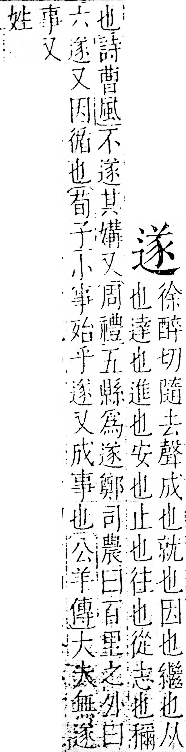 遂
徐醉切隨去聲成也就也因也繼也从
也達也進也安也止也往也從志也穪
也詩曹風不遂其媾又周禮五縣爲遂鄭司農曰百里之外曰
六遂又因循也荀子小事殆乎遂又成事也公羊傳大夫無遂
事又
姓